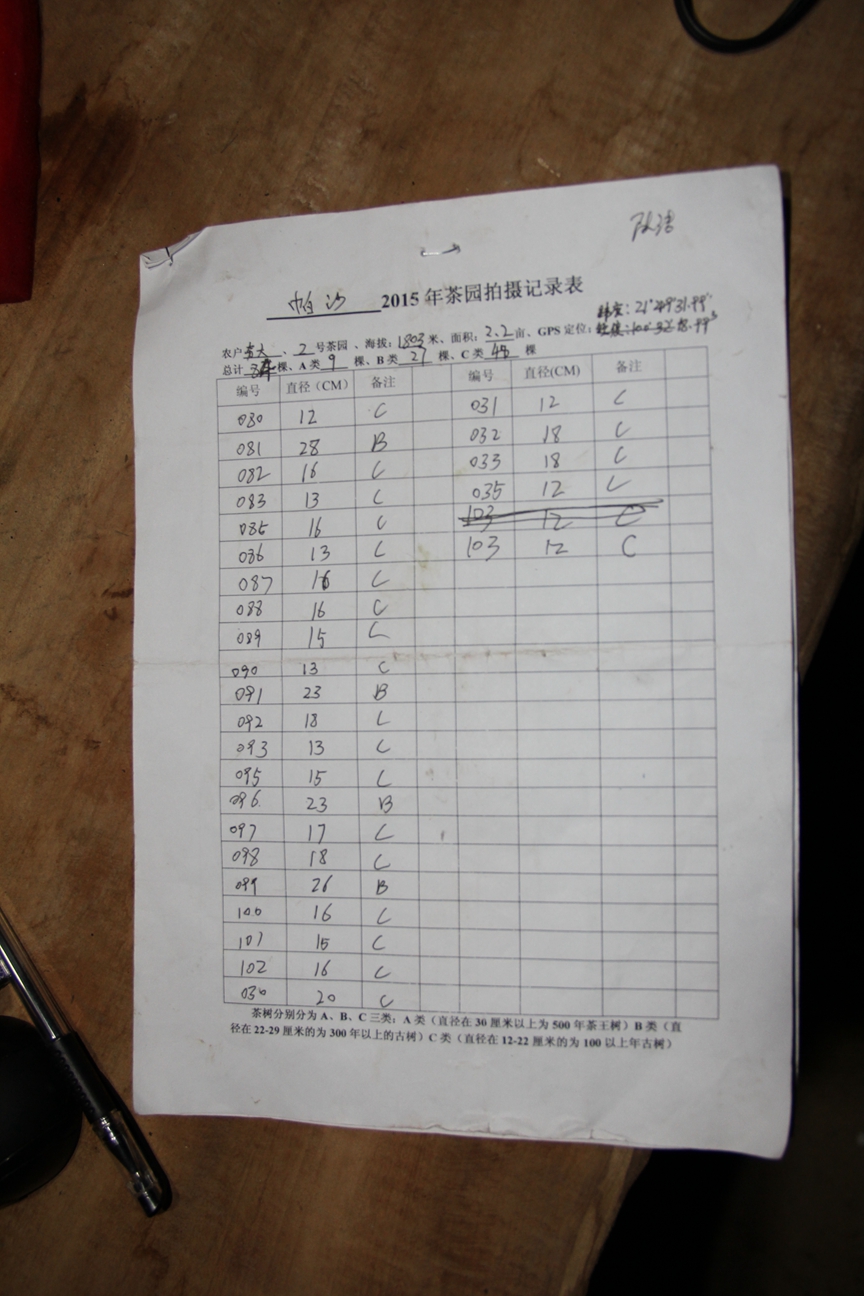 帕沙 2015 年茶园拍摄记录表
纬度：21°49'31.99"
农户 、2 号茶园 、海拔：1803 米、面积：2.2 亩、GPS 定位：
总计 棵、A 类 9 棵、B 类 27 棵、C 类 48 棵
编号 直径（CM） 备注 编号 直径(CM) 备注
080 12 C 031 12 C
081 28 B 032 18 C
082 16 C 033 18 C
083 13 C 035 12 C
085 16 C 103 12 C
086 13 C 103 12 C
087 16 C
088 16 C
089 15 C
090 13 C
091 23 B
092 18 C
093 13 C
095 15 C
096 23 B
097 17 C
098 18 C
099 26 B
100 16 C
101 15 C
102 16 C
030 20 C
茶树分别分为 A、B、C 三类：A 类（直径在 30 厘米以上为 500 年茶王树）B 类（直
径在 22-29 厘米的为 300 年以上的古树）C 类（直径在 12-22 厘米的为 100 以上年古树）